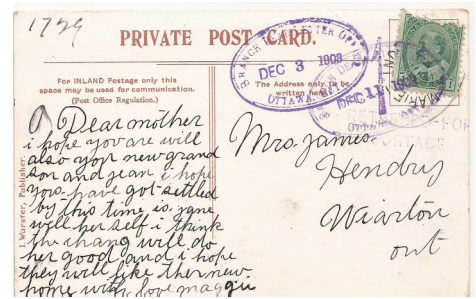 1729
PRIVATE POST CARD.
For INLAND Postage only this
space may be used for communication.
(Post Office Regulation.)
The Address only to be
written here.
BRANCH DEAD LETTER OFFICE
DEC 3 1908
OTTAWA
DEC 11 1908
J. Wurster, Publisher.
Dear mother
i hope you are will
also yor new grand
son and jean i hope
yors have got settled
by this time is jane
will her self i think
the chang will do
her good and i hope
they will like ther new
home with love maggie
Mrs. James
Hendry
Wiarton
ont